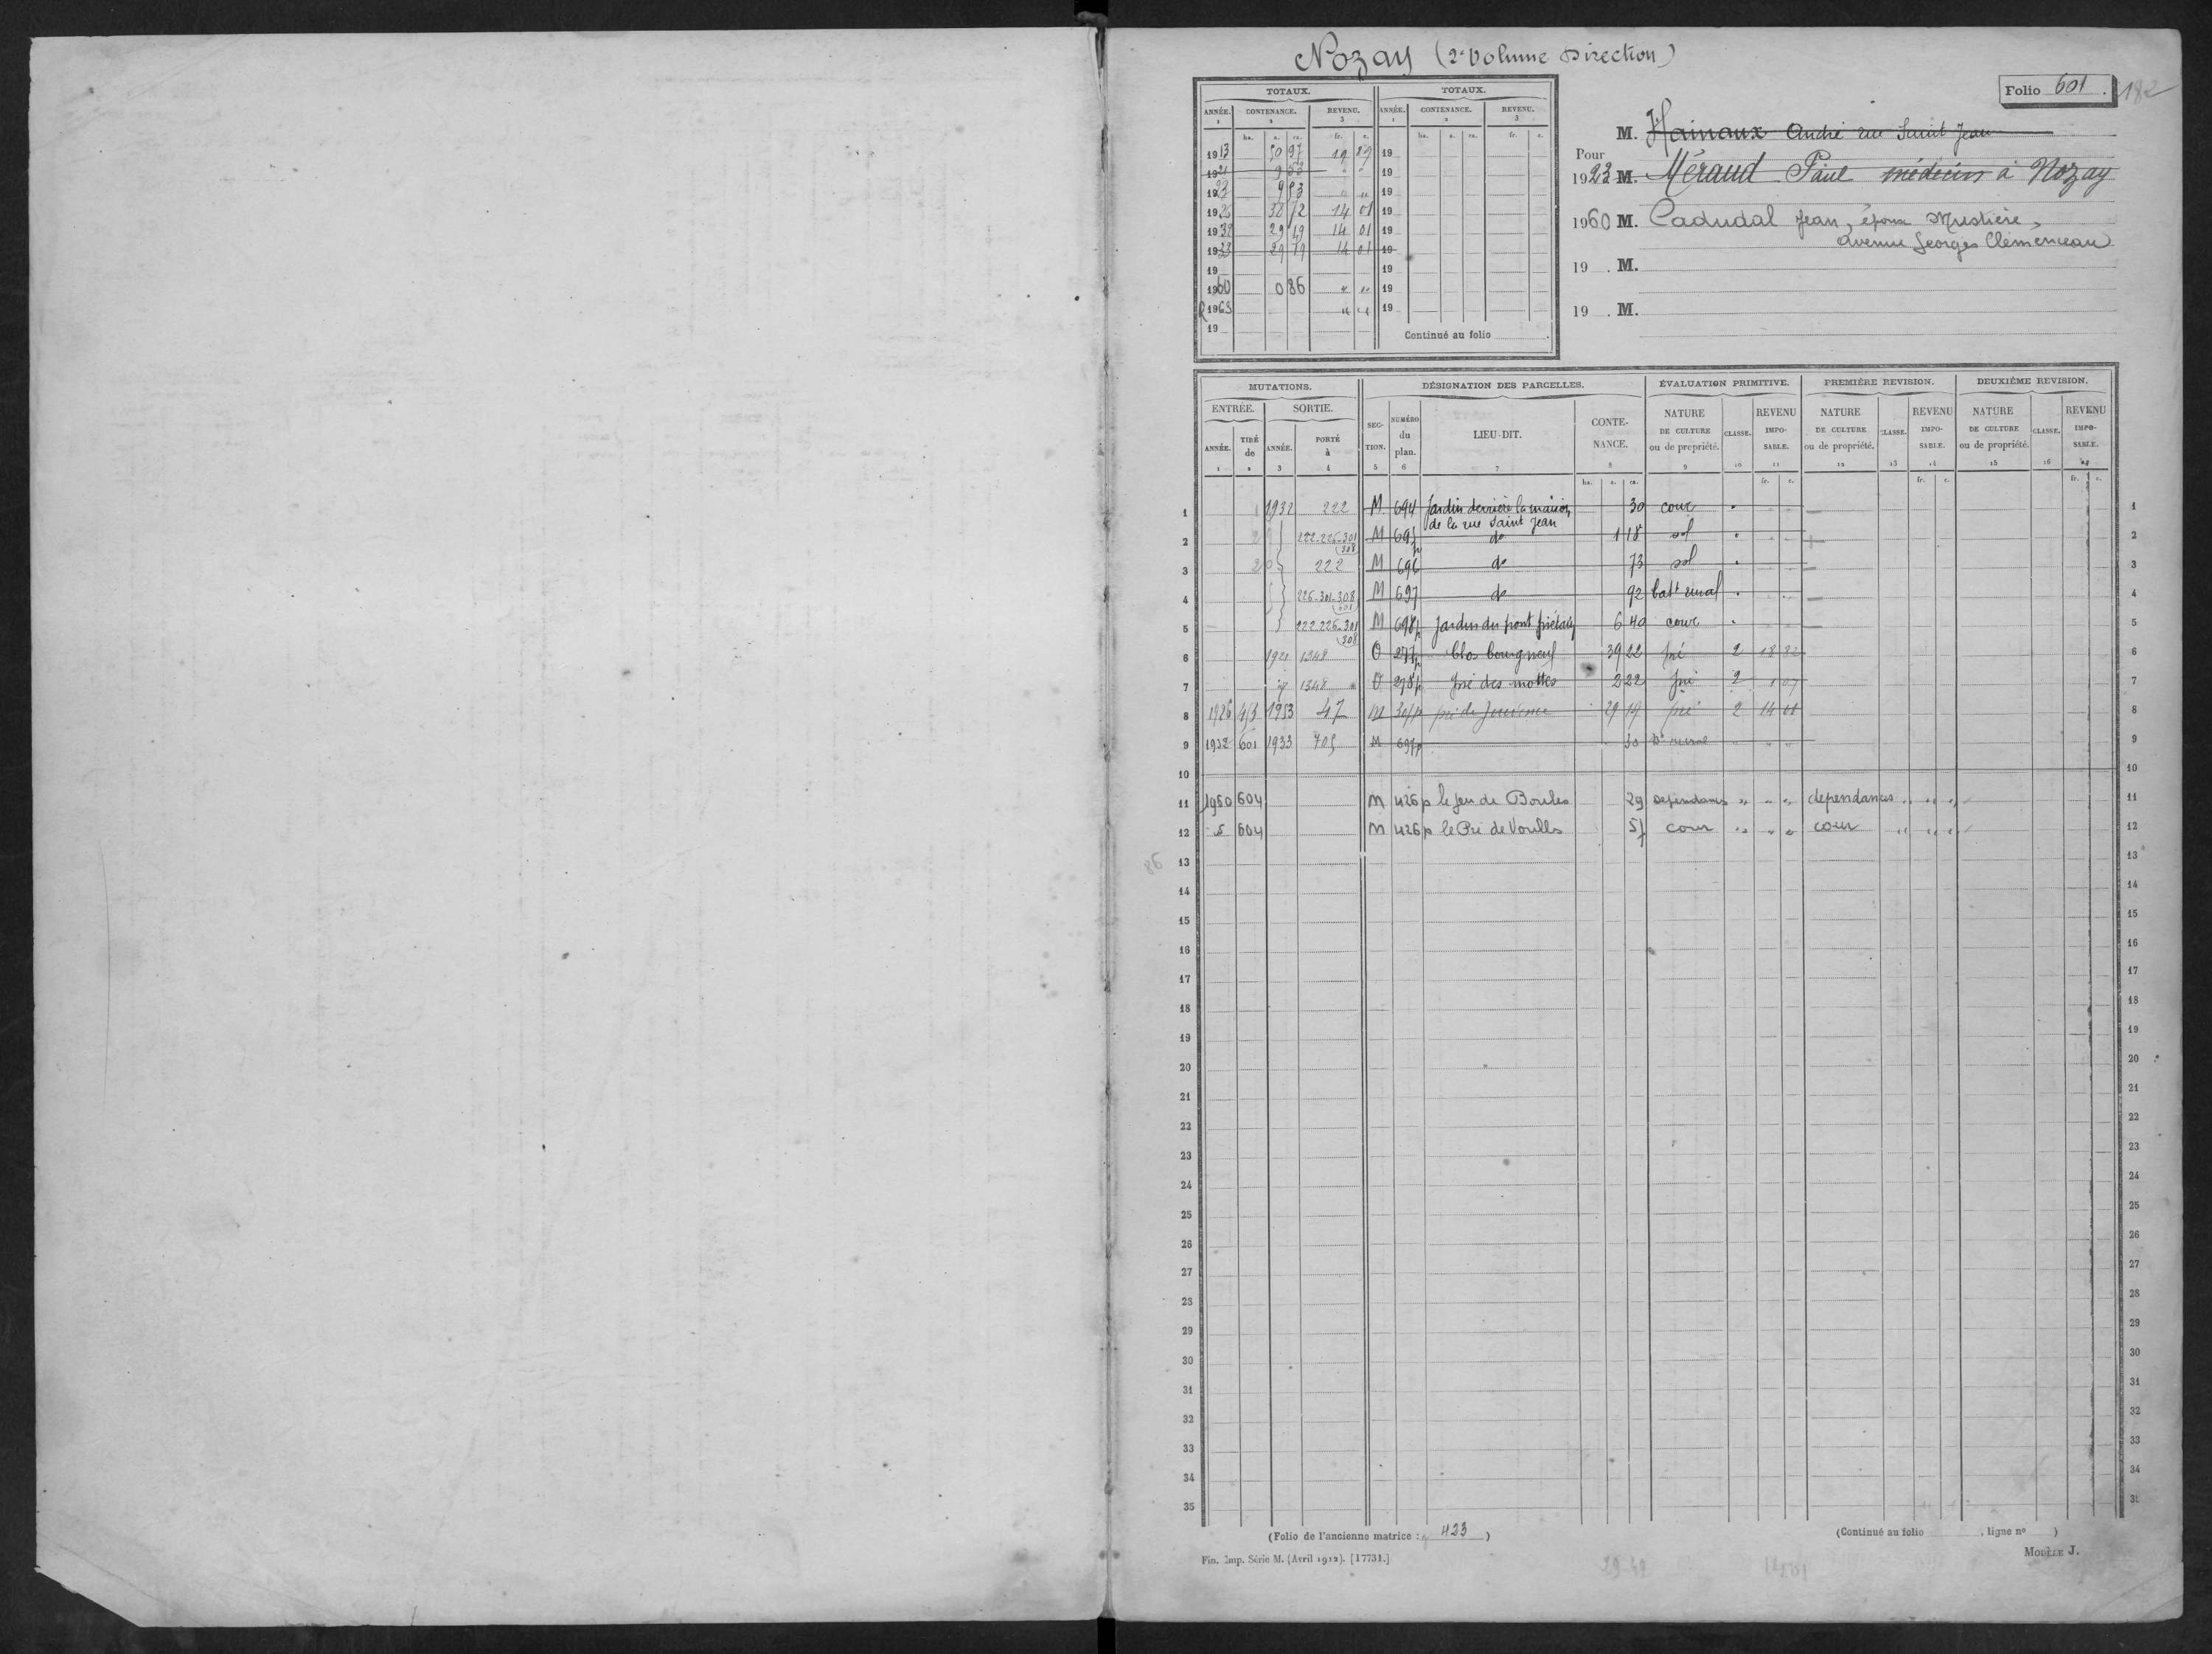 Nozay (2e Volume Direction)
Folio 601. 182
TOTAUX. TOTAUX.
ANNÉE. CONTENANCE. REVENU. ANNÉE. CONTENANCE. REVENU.
1 2 3 1 2 3
ha. a. ca. fr. c. ha. a. ca. fr. c.
1913 50 97 19 29 19
1921 9 53 " " 19
1923 9 53 " " 19
1926 38 72 14 01 19
1932 29 49 14 01 19
1933 29 19 14 01 19
19 19
1960 0 86 " " 19
R 1963 " " 19
19
Continué au folio
M. Hainaux André rue Saint Jean
Pour
1923 M. Méraud Paul médecin à Nozay
1960 M. Cadudal Jean, époux Mustière,
avenue Georges Clémenceau
19 . M.
19 . M.
MUTATIONS. DÉSIGNATION DES PARCELLES. ÉVALUATION PRIMITIVE. PREMIÈRE REVISION. DEUXIÈME REVISION.
ENTRÉE. SORTIE. SECTION. NUMÉRO du plan. LIEU-DIT. CONTENANCE. NATURE DE CULTURE ou de propriété. CLASSE. REVENU IMPOSABLE. NATURE DE CULTURE ou de propriété. CLASSE. REVENU IMPOSABLE. NATURE DE CULTURE ou de propriété. CLASSE. REVENU IMPOSABLE.
ANNÉE. TIRÉ de ANNÉE. PORTÉ à
1 2 3 4 5 6 7 8 9 10 11 12 13 14 15 16
ha. a. ca. fr. c. fr. c. fr. c.
1 1932 222 M 694 Jardin derrière la maison 30 cour 1
de la rue Saint Jean
2 222-226-301 M 695p do 1 18 sol 2
308
3 222 M 696 do 73 sol 3
4 226-301-308 M 697 do 92 batt rural 4
601
5 222.226.301 M 698p Jardin du pont 6 40 cour 5
308
6 1921 1348 O 277p Clos bourgneuf 39 22 pré 2 18 82 6
7 1348 O 278p pré des mottes 2 22 pré 2 1 07 7
8 1926 453 1953 47 M 301p pré de 29 19 pré 2 14 01 8
9 1932 601 1933 705 M 697p 30 Bt rural " " " 9
10 10
11 1960 604 M 426p le Jeu de Boules 29 Dependances " " " dependances " " " 11
12 604 M 426p le Pré de 57 cour " " " cour " " " 12
86
13 13
14 14
15 15
16 16
17 17
18 18
19 19
20 20
21 21
22 22
23 23
24 24
25 25
26 26
27 27
28 28
29 29
30 30
31 31
32 32
33 33
34 34
35 35
(Folio de l'ancienne matrice : 423 ) (Continué au folio , ligne no )
Fin. Imp. Série M. (Avril 1912). [17731.] MODÈLE J.
29-49